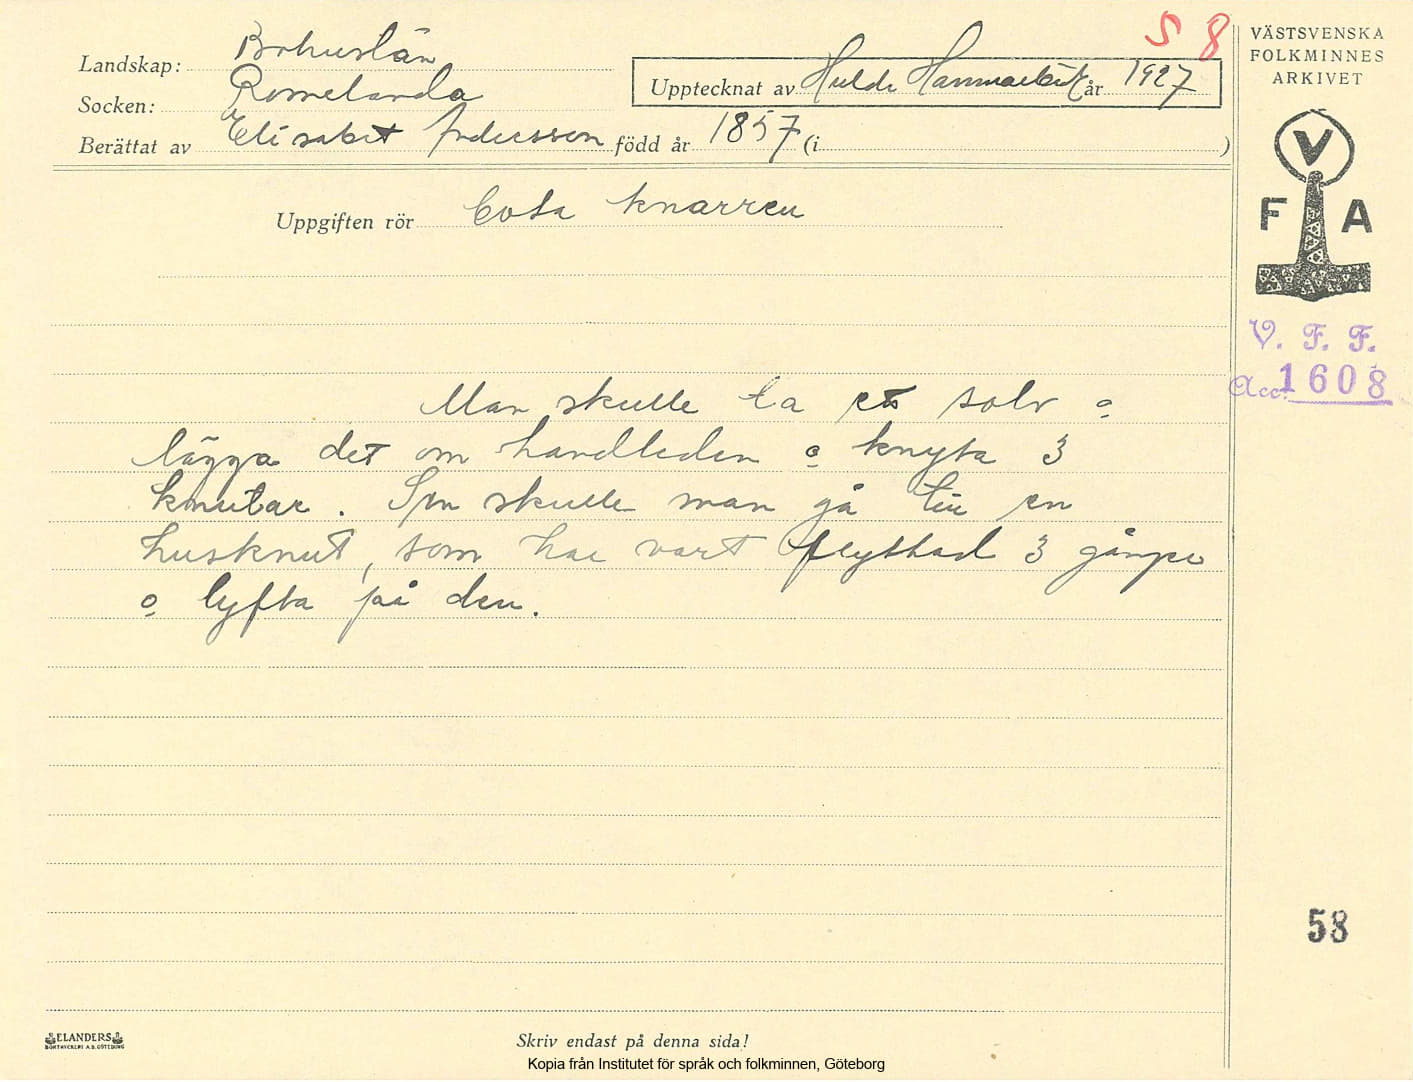 S 8
VÄSTSVENSKA
FOLKMINNES
ARKIVET
Landskap: Bohuslän
Socken: Romelanda
Upptecknat av Hulda Hammarbäck år 1927
Berättat av Elisabet Andersson född år 1857 (i )
Uppgiften rör bota knarren
V
F A
V. F. F.
Acc. 1608
Man skulle ta et solv o
lägga det om handleden o knyta 3
knutar. Sen skulle man gå till en
husknut, som har vart flyttad 3 gånger
o lyfta på den.
58
ELANDERS
BOKTRYCKERI A.B. GÖTEBORG
Skriv endast på denna sida!
Kopia från Institutet för språk och folkminnen, Göteborg